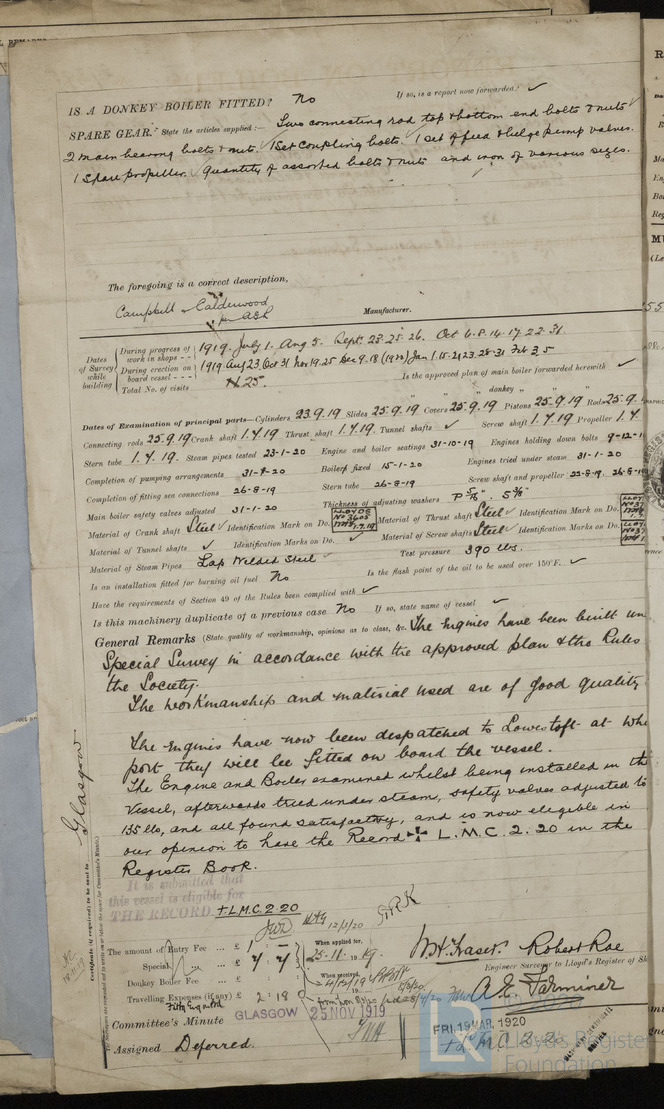 IS A DONKEY BOILER FITTED? No If so, is a report now forwarded? ✓
SPARE GEAR. State the articles supplied:— Two connecting rod top & bottom end bolts & nuts
2 main bearing bolts & nuts. 1 Set Coupling bolts. 1 set of feed & bilge pump valves.
1 Spare propeller. Quantity of assorted bolts & nuts and iron of various sizes.
The foregoing is a correct description,
Campbell & Calderwood
Manufacturer.
Dates of Survey while building
During progress of work in shops - - 1919. July 1. Aug 5. Sept. 23. 25. 26. Oct 6. 8. 14. 17. 22. 31.
During erection on board vessel - - - 1919 Aug 23 Oct 31 Nov 19. 25 Dec 9. 18 (1920) Jan 1. 15. 21 23. 28. 31 Feb 3. 5
Total No. of visits 25. Is the approved plan of main boiler forwarded herewith ✓
" " " donkey " " "
Dates of Examination of principal parts—Cylinders 23.9.19 Slides 25.9.19 Covers 25.9.19 Pistons 25.9.19 Rods 25.9.
Connecting rods 25.9.19 Crank shaft 1.7.19 Thrust shaft 1.7.19. Tunnel shafts ✓ Screw shaft 1.7.19 Propeller 1.7.
Stern tube 1.7.19. Steam pipes tested 23-1-20 Engine and boiler seatings 31-10-19 Engines holding down bolts 9-12-1
Completion of pumping arrangements 31-1-20 Boilers fixed 15-1-20 Engines tried under steam 31-1-20
Completion of fitting sea connections 26-8-19 Stern tube 26-8-19 Screw shaft and propeller 22-8-19. 26-8-19
Main boiler safety valves adjusted 31-1-20 Thickness of adjusting washers P 5/16" S 5/16"
Material of Crank shaft Steel ✓ Identification Mark on Do. LLOYDS No 3605 Material of Thrust shaft Steel ✓ Identification Mark on Do. LLOY
Material of Tunnel shafts ✓ Identification Marks on Do. ✓ Material of Screw shafts Steel ✓ Identification Marks on Do. LLOY
Material of Steam Pipes Lap Welded Steel ✓ Test pressure 390 lbs.
Is an installation fitted for burning oil fuel No Is the flash point of the oil to be used over 150°F. ✓
Have the requirements of Section 49 of the Rules been complied with ✓
Is this machinery duplicate of a previous case No If so, state name of vessel ✓
General Remarks (State quality of workmanship, opinions as to class, &c. The Engines have been built un
Special Survey in accordance with the approved plan & the Rules
the Society.
The workmanship and material used are of good quality
The Engines have now been despatched to Lowestoft at whi
port they will be fitted on board the vessel.
The Engine and Boiler examined whilst being installed in th
Vessel, afterwards tried under steam, safety valves adjusted to
135 lbs, and all found satisfactory, and is now eligible in
our opinion to have the Record ✠ L.M.C. 2.20 in the
Register Book.
It is submitted that
this vessel is eligible for
THE RECORD + L.M.C. 2.20
12/3/20
Glasgow
Certificate (if required) to be sent to
The amount of Entry Fee ... £ 1 : -
Special ... £ 4 : 4
Donkey Boiler Fee ... £ : :
Travelling Expenses (if any) £ 2 : 18
When applied for,
25-11-1919
When received,
4/12/19
W. Fraser. Robert Rae
Engineer Surveyor to Lloyd's Register of Sh
A. E. Farminer
Committee's Minute GLASGOW 25 NOV 1919
FRI. 19 MAR. 1920
Assigned Deferred.
+ LMC 2 20
LR Lloyd's Register
Foundation